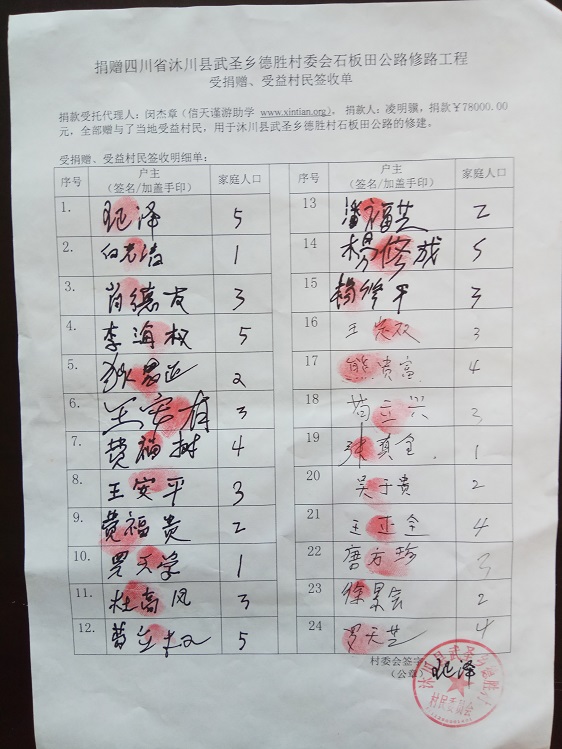 捐赠四川省沐川县武圣乡德胜村委会石板田公路修路工程
受捐赠、受益村民签收单
捐款受托代理人：闵杰章（信天谨游助学 www.xintian.org)， 捐款人：凌明骥，捐款￥78000.00
元，全部赠与了当地受益村民，用于沐川县武圣乡德胜村石板田公路的修建。
受捐赠、受益村民签收明细单：
序号 户主（签名/加盖手印） 家庭人口
1. 泽 5
2. 1
3. 肖德友 3
4. 李海权 5
5. 2
6. 王安有 3
7. 费福树 4
8. 王安平 3
9. 费福贵 2
10. 罗天学 1
11. 杜高风 3
12. 5
序号 户主（签名/加盖手印） 家庭人口
13 潘福芝 2
14 杨修成 5
15 杨修平 3
16 王 双 3
17 熊贵富 4
18 3
19 张真全 1
20 吴于贵 2
21 王正全 4
22 唐方珍 3
23 徐 会 2
24 罗天芝 4
村委会签字
（公章） 泽
沐川县武圣乡德胜
村民委员会